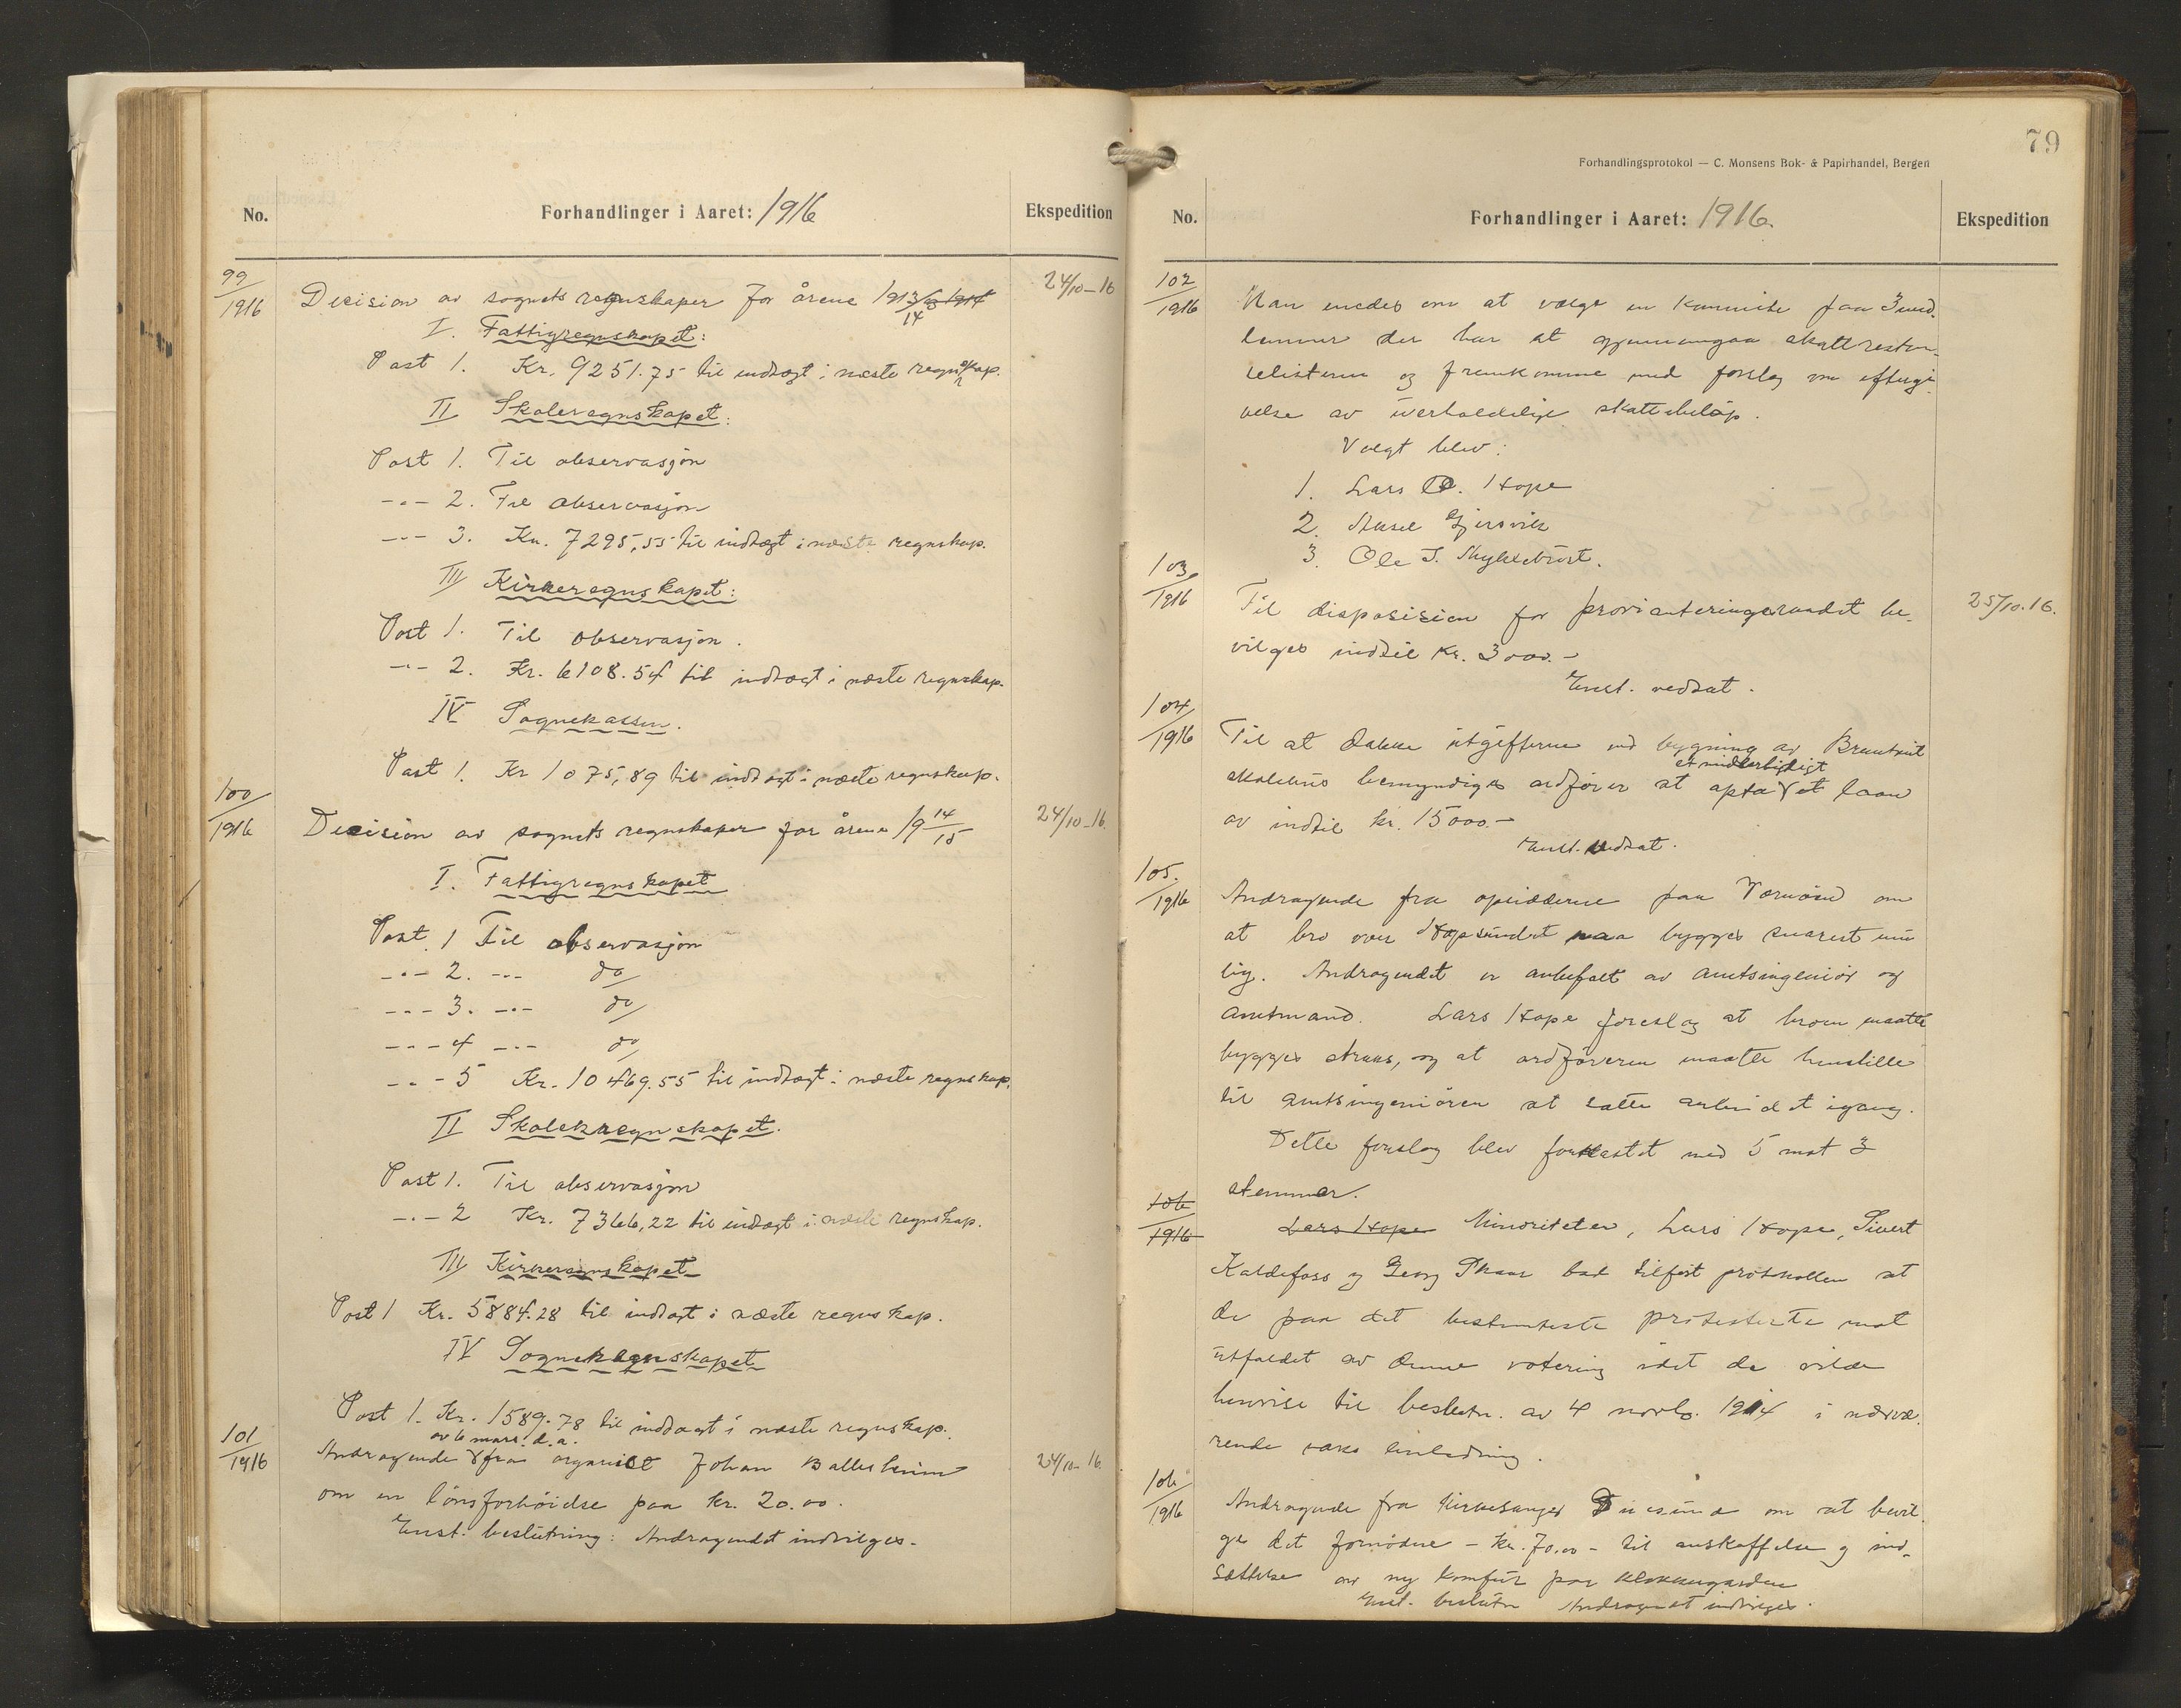 No.
Forhandlinger i Aaret: 1916
Ekspedition
99/1916
Decision av sognets regnskaper for årene 1913/14
24/10-16
I. Fattigregnskapet:
Post 1. Kr. 9251.75 til indtægt i næste regnskap.
II Skoleregnskapet:
Post 1. Til observasjon
-"- 2. Til observasjon
-"- 3. Kr. 7295,55 til indtægt i næste regnskap.
III Kirkeregnskapet:
Post 1. Til observasjon.
-"- 2. Kr. 6108.54 til indtægt i næste regnskap.
IV Sognekassen.
Post 1. Kr 1075,89 til indtægt i næste regnskap.
100/1916
Decision av sognets regnskaper for årene 19 14/15
24/10-16.
I. Fattigregnskapet
Post 1 Til observasjon
-"- 2. -"- do
-"- 3. -"- do
-"- 4 -"- do
-"- 5 Kr. 10469.55 til indtægt i næste regnskap.
II Skoleregnskapet.
Post 1. Til observasjon
-"- 2 Kr. 7366,22 til indtægt i næste regnskap.
III Kirkeregnskapet
Post 1 Kr. 5884.28 til indtægt i næste regnskap.
IV Sogneregnskapet
Post 1. Kr. 1589.78 til indtægt i næste regnskap.
101/1916
av 6 mars. d.a.
Andragende fra organist Johan Ballesheim
24/10-16.
om en lönsforhöielse paa kr. 20.00.
Enst. beslutning: Andragendet indvilges.
79
Forhandlingsprotokol — C. Monsens Bok- & Papirhandel, Bergen
No.
Forhandlinger i Aaret: 1916.
Ekspedition
102/1916
Man enedes om at vælge en kommite paa 3 med-
lemmer der har at gjennemgaa skattrestan-
selisterne og fremkomme med forslag om eftergi-
velse av uerholdelige skattebelöp.
Valgt blev:
1. Lars O. Hope
2. Aksel Gjersvik
3. Ole J. Myksebust.
103/1916
Til disposision for provianteringsraadet be-
25/10.16.
vilges indtil Kr. 3000.-
Enst. vedtat.
104/1916
Til at dække utgifterne ved bygning av
et midlertidigt
skolehus bemyndiges ordförer at opta et laan
av indtil kr. 15000.-
Enst. vedtat.
105./1916
Andragende fra opsidderne paa om
at bro over Hopsundet maa bygges snarest mu
lig. Andragendet er anbefalt av amtsingeniör og
amtmand. Lars Hope foreslog at broen maatte
bygges straks, og at ordföreren maatte henstille
til amtsingeniören at sætte arbeidet igang.
Dette forslag blev forkastet med 5 mot 3
stemmer.
106/1916
Lars Hope Minoriteten, Lars Hope, Sivert
Kaldefoss og Georg Skaar bad tilført protokollen at
de paa det bestemteste protesterte mot
utfaldet av denne votering idet de vilde
henvise til beslutn. av 4 novbr. 1914 i nærvæ-
rende saks
106/1916
Andragende fra kirkesanger om at bevil-
ge det fornödne - kr. 70.00 - til anskaffelse og ind-
sættelse av ny komfür paa klokkergarden
Enst. beslutn Andragendet indvilges.